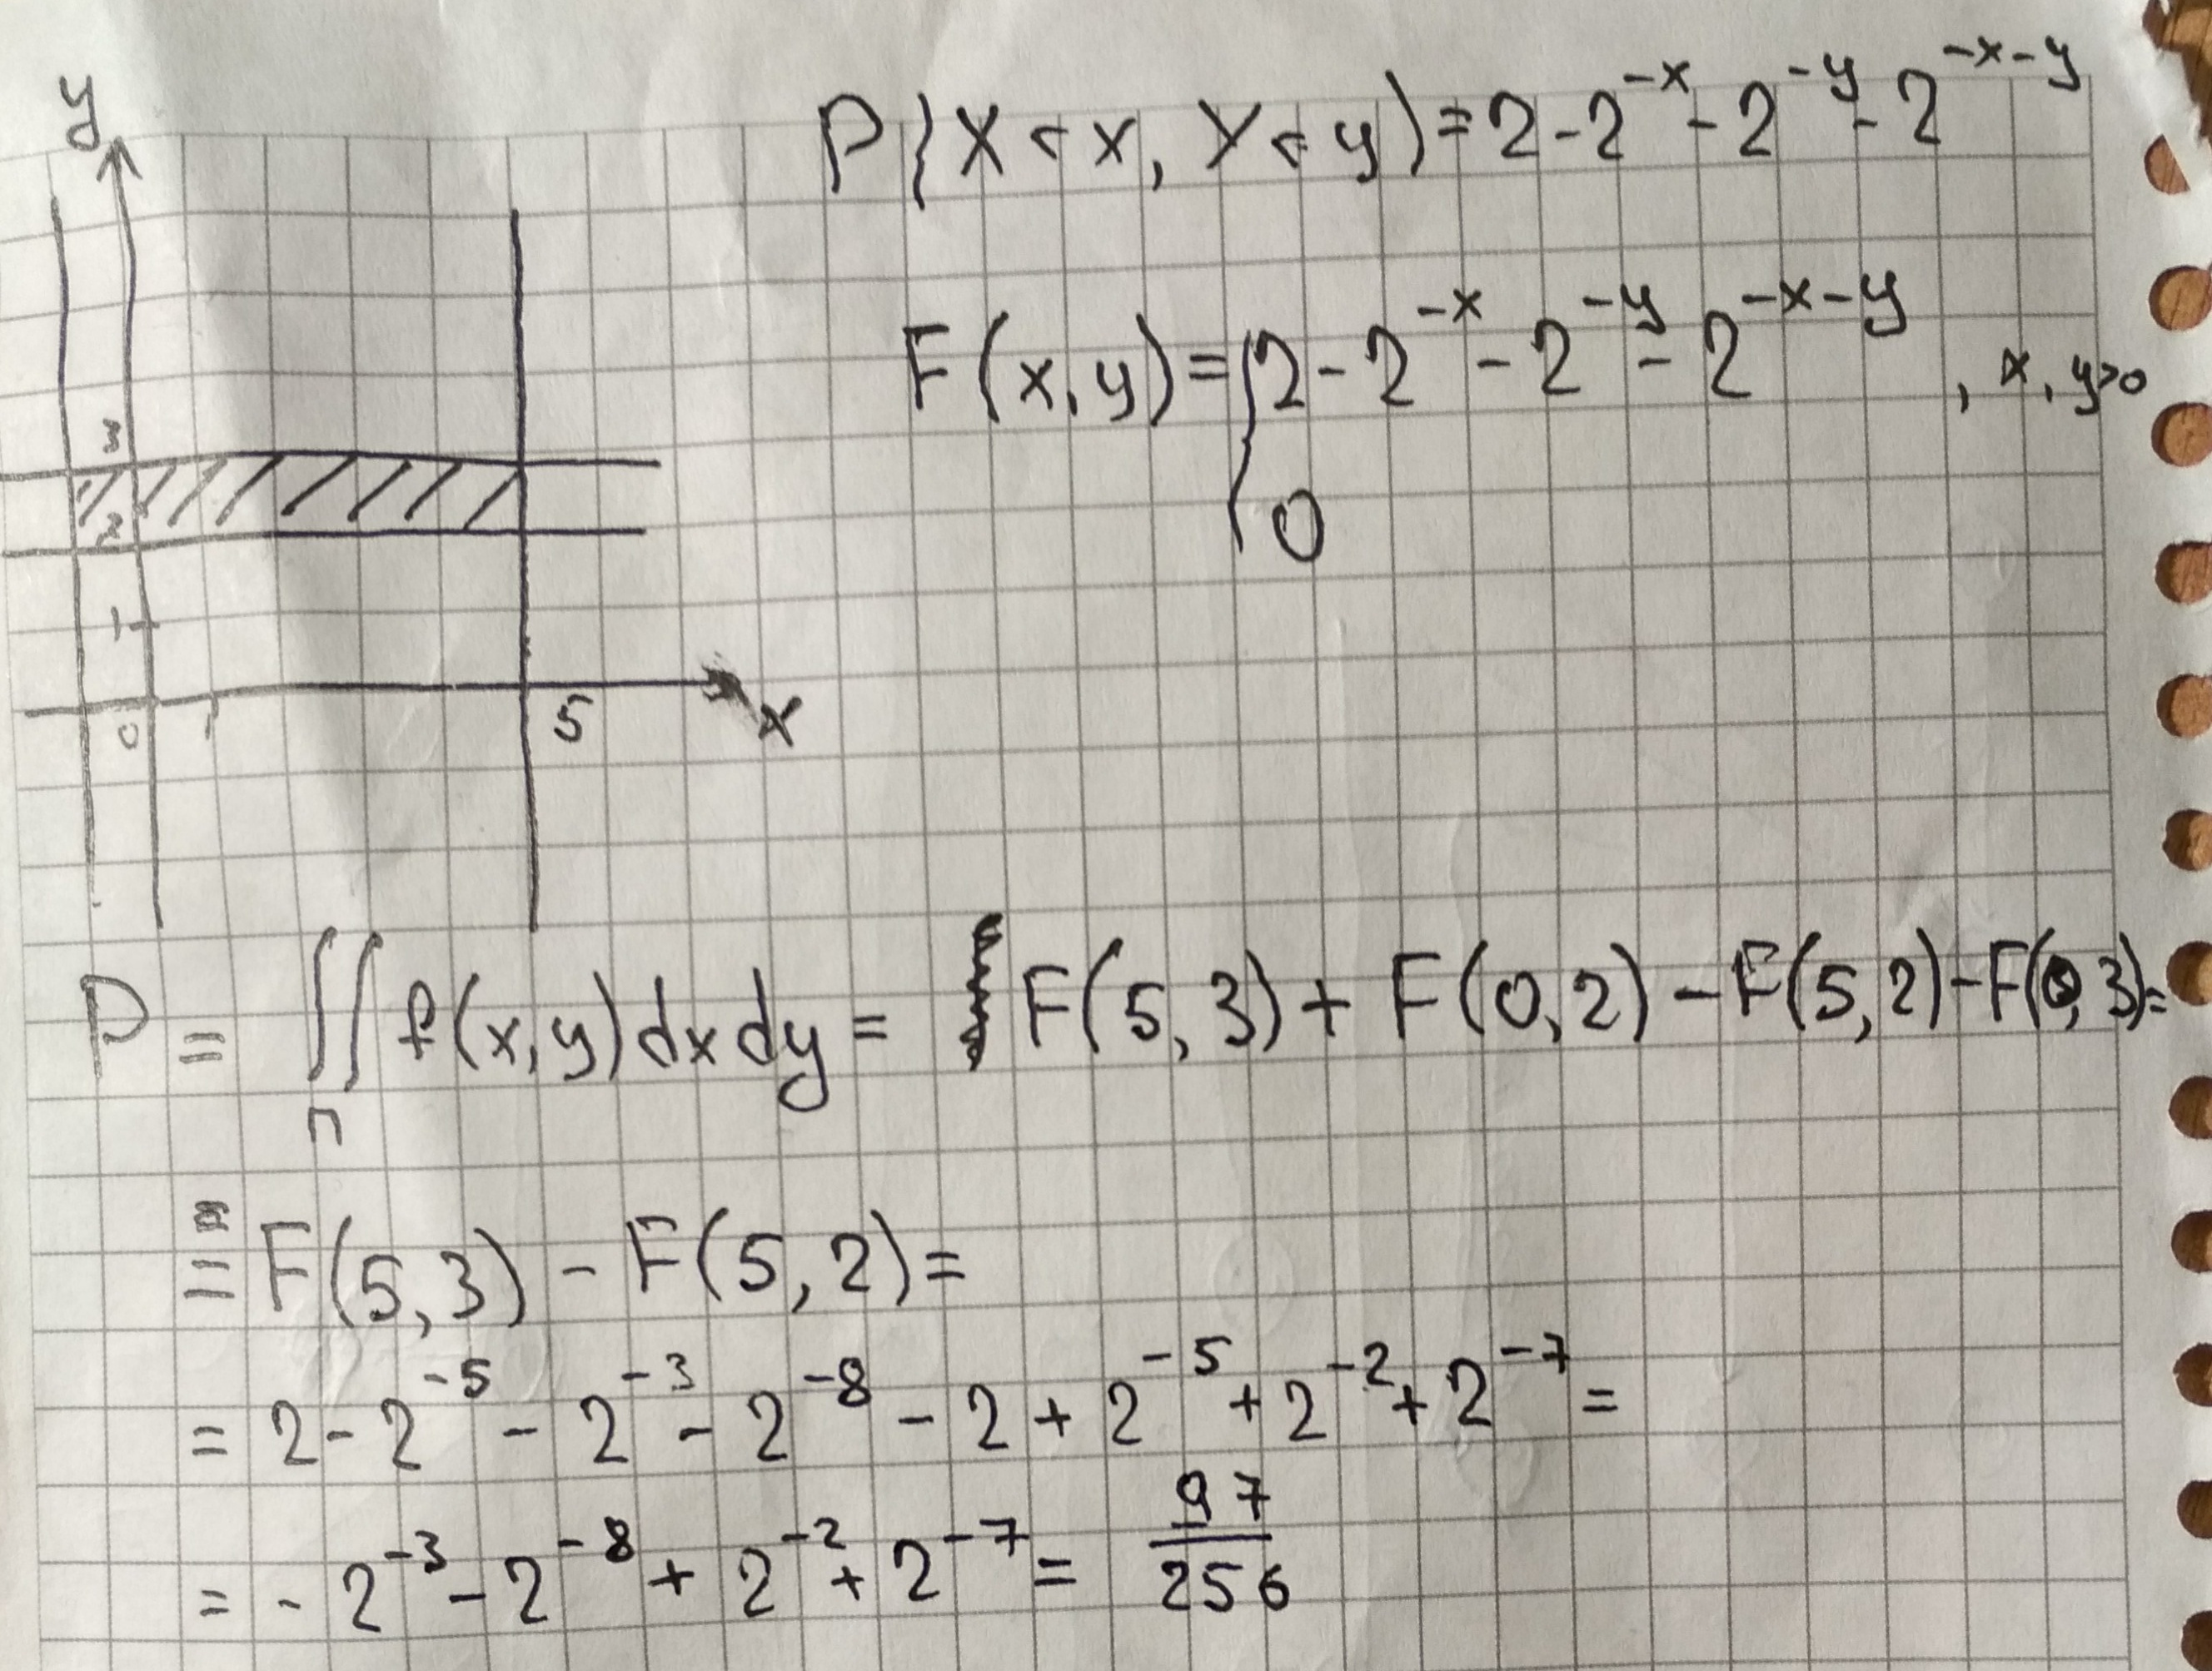 y
P(X<x, Y<y)=2-2^{-x}-2^{-y}-2^{-x-y}
F(x,y)={2-2^{-x}-2^{-y}-2^{-x-y}, x, y>0
0
3
2
1
0 1 5 x
P = ∬_П f(x,y)dxdy = F(5,3)+F(0,2)-F(5,2)-F(0,3)=
= F(5,3)-F(5,2)=
= 2-2^{-5}-2^{-3}-2^{-8}-2+2^{-5}+2^{-2}+2^{-7}=
= -2^{-3}-2^{-8}+2^{-2}+2^{-7}= 97/256